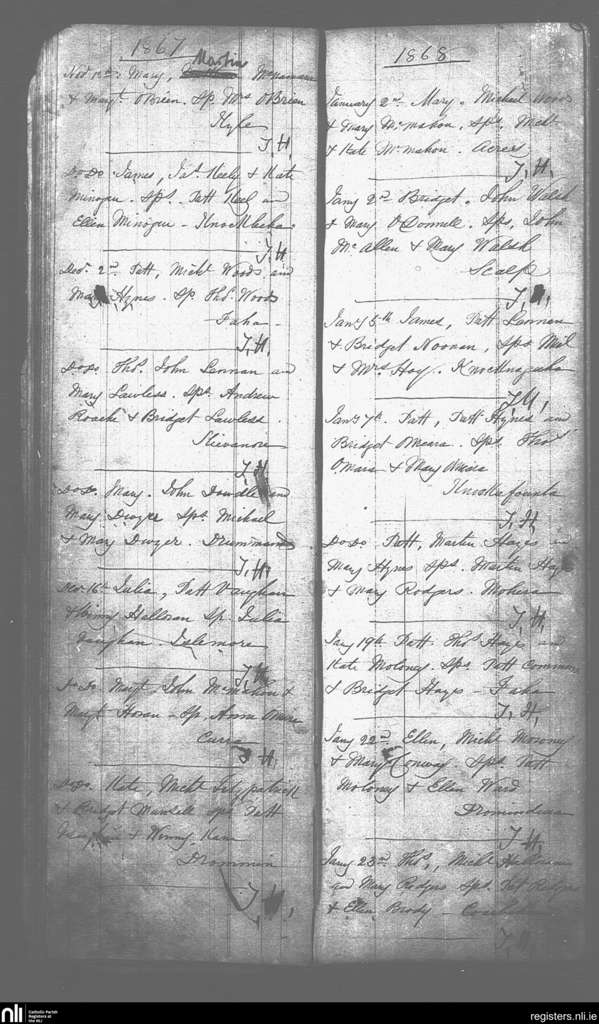 1867
Nov 12th Mary, Martin McNamara
& Margt OBrien, Sp. Mrs OBrien
Kyle
T,H,
Do Do James, Jas Keely & Kate
Minogue. Sps. Patt Keel and
Ellen Minogue -
T,H
Decr. 2nd Patt, Michl Woods and
Mary Hynes. Sp Thos. Woods
Faha -
T,H,
Do Do Thos. John Lennan and
Mary Lawless. Sps. Andrew
Roache & Bridget Lawless.
Slievanore
T,H
Do Do. Mary. John Dowdle and
Mary Dwyer Sps. Michael
& Mary Dwyer. Drummand
T,H,
Decr 16th Julia, Patt Vaughan
& Winny Halloran Sp. Julia
Vaughan. Islemore
T,H
Do Do. Margt, John McMahon &
Margt Horan - Sp. Anne
Curra
T,H,
Do Do. Kate, Michl Fitzpatrick
& Bridget Sps. Patt
& Winny Kane
Drommin
T,H,
1868
January 2nd Mary. Michael Woods
& Mary McMahon. Sps. Michl
& Kate McMahon. Acres
T,H,
Jany 2nd Bridget. John Walsh
& Mary ODonnell. Sps, John
McAllen & Mary Walsh
Scalp
T,H,
Jany 5th James, Patt Lennan
& Bridget Noonan, Sps Michl
& Mrs Hoy.
T,H,
Jany 7th. Patt, Patt Hynes and
Bridget Omeara. Sps. Thos
Omara & Mary Omara
T,H,
Do Do. Patt, Martin Hayes &
Mary Hynes Sps. Martin Hayes
& Mary Rodgers. Mohera
T,H,
Jany 19th Patt. Thos Hayes and
Kate Moloney. Sps Patt Commons
& Bridget Hayes - Faha
T,H,
Jany 22nd Ellen, Michl Moroney
& Mary Conway. Sps Patt
Moloney & Ellen Ward
T,H,
Jany 23rd Thos., Michl Halloran
and Mary Rodgers Sps. Pat Rodgers
& Ellen Brody -
T,H,
nli
Catholic Parish
Registers at
the NLI
registers.nli.ie